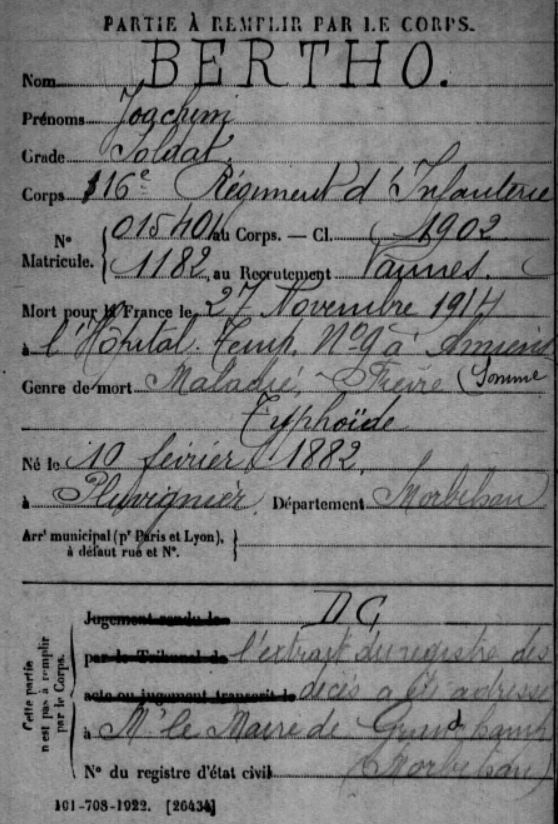 PARTIE À REMPLIR PAR LE CORPS.
Nom BERTHO.
Prénoms Joachim
Grade Soldat.
Corps 116e Régiment d'Infanterie
N° Matricule. { 015401 au Corps. — Cl. 1902
1182 au Recrutement Vannes.
Mort pour la France le 27 Novembre 1914
à l'Hôpital Temp. N°9 à Amiens
Genre de mort Maladie, Fièvre (Somme
Typhoïde
Né le 10 février 1882
à Pluvignier. Département Morbihan
Arrt municipal (pr Paris et Lyon), à défaut rue et N°. }
Cette partie n'est pas à remplir par le Corps. {
Jugement rendu le DC
par le Tribunal de l'extrait du registre des
acte ou jugement transcrit le décès a été adressé
à Mr le Maire de Grandchamp
N° du registre d'état civil (Morbihan)
101-708-1922. [26434]